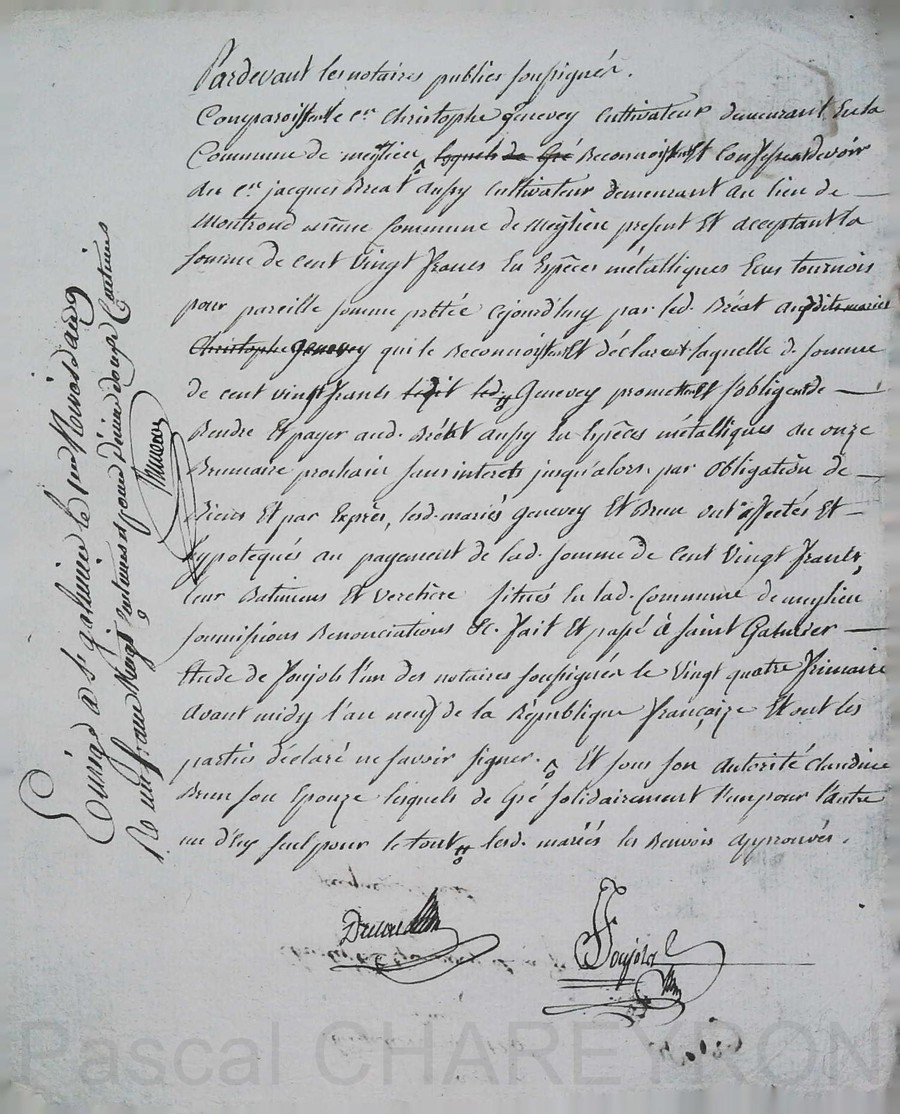 Pardevant les notaires publics soussignés.
Comparoissent le cen Christophe Genevey Cultivateur demeurant En la
Commune de meylieu lesquels de Gré Reconnoissent Et Confessent devoir
au cen jacques Breat aussy Cultivateur demeurant au lieu de
Montrond même Commune de Meylieu present Et acceptant la
somme de cent Vingt francs En Espèces métalliques Ecus tournois
pour pareille somme prêtée cejourdhuy par led. Bréat auxdits mariés
Christophe Genevey qui le Reconnoissent Et déclarent laquelle d. somme
de cent vingt francs led. Genevey promettent Et s'obligent de
Rendre Et payer aud. Bréat aussy En Espèces métalliques au onze
Brumaire prochain sans interets jusqu'alors. par Obligation de
Biens Et par Exprès, lesd. mariés Genevey Et Brun ont affectés Et
hypotequés au payement de lad. somme de Cent Vingt francs,
leur Batimens Et verchère situés En lad. Commune de meylieu
soumissions Renonciations &c. fait Et passé à Saint Galmier
Etude de Foujols l'un des notaires soussignés le Vingt quatre frimaire
avant midy l'an neuf de la République françoize Et ont les
parties déclaré ne savoir signer. Et sous son autorité Claudine
Brun son Epouze lesquels de Gré solidairement l'un pour l'autre
un d'Eux seul pour le tout lesd. mariés les Renvois approuvés.
Foujols
Enrégé a St galmier le
Pascal CHAREYRON